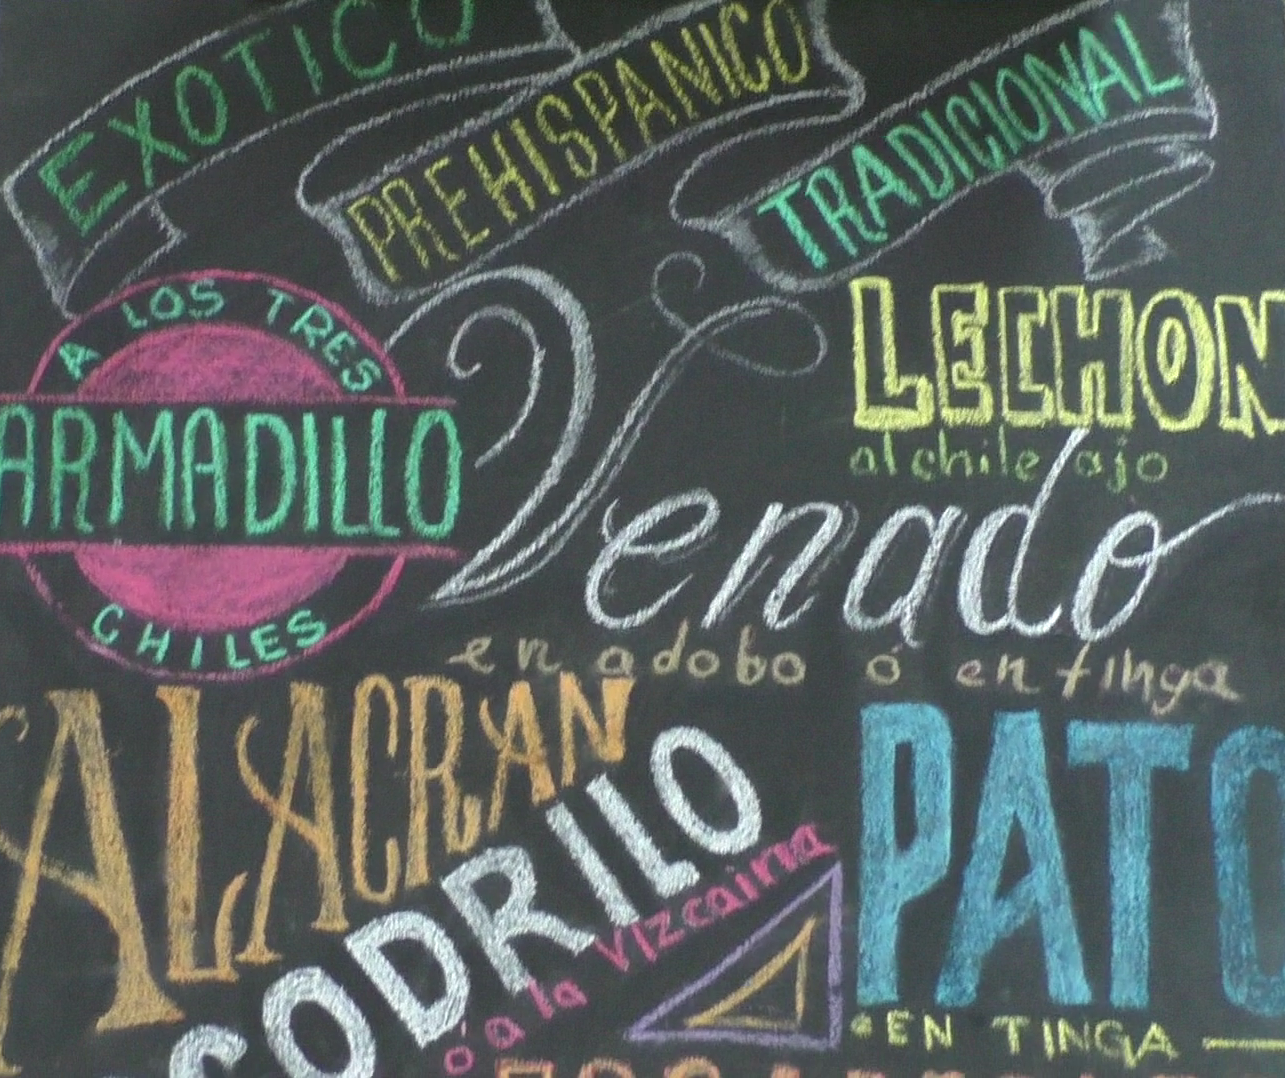 EXOTICO
PREHISPANICO
TRADICIONAL
A LOS TRES
ARMADILLO
CHILES
LECHON
al chile ajo
Venado
en adobo ó en tinga
ALACRAN
CODRILO
ó a la Vizcaina
PATO
•EN TINGA